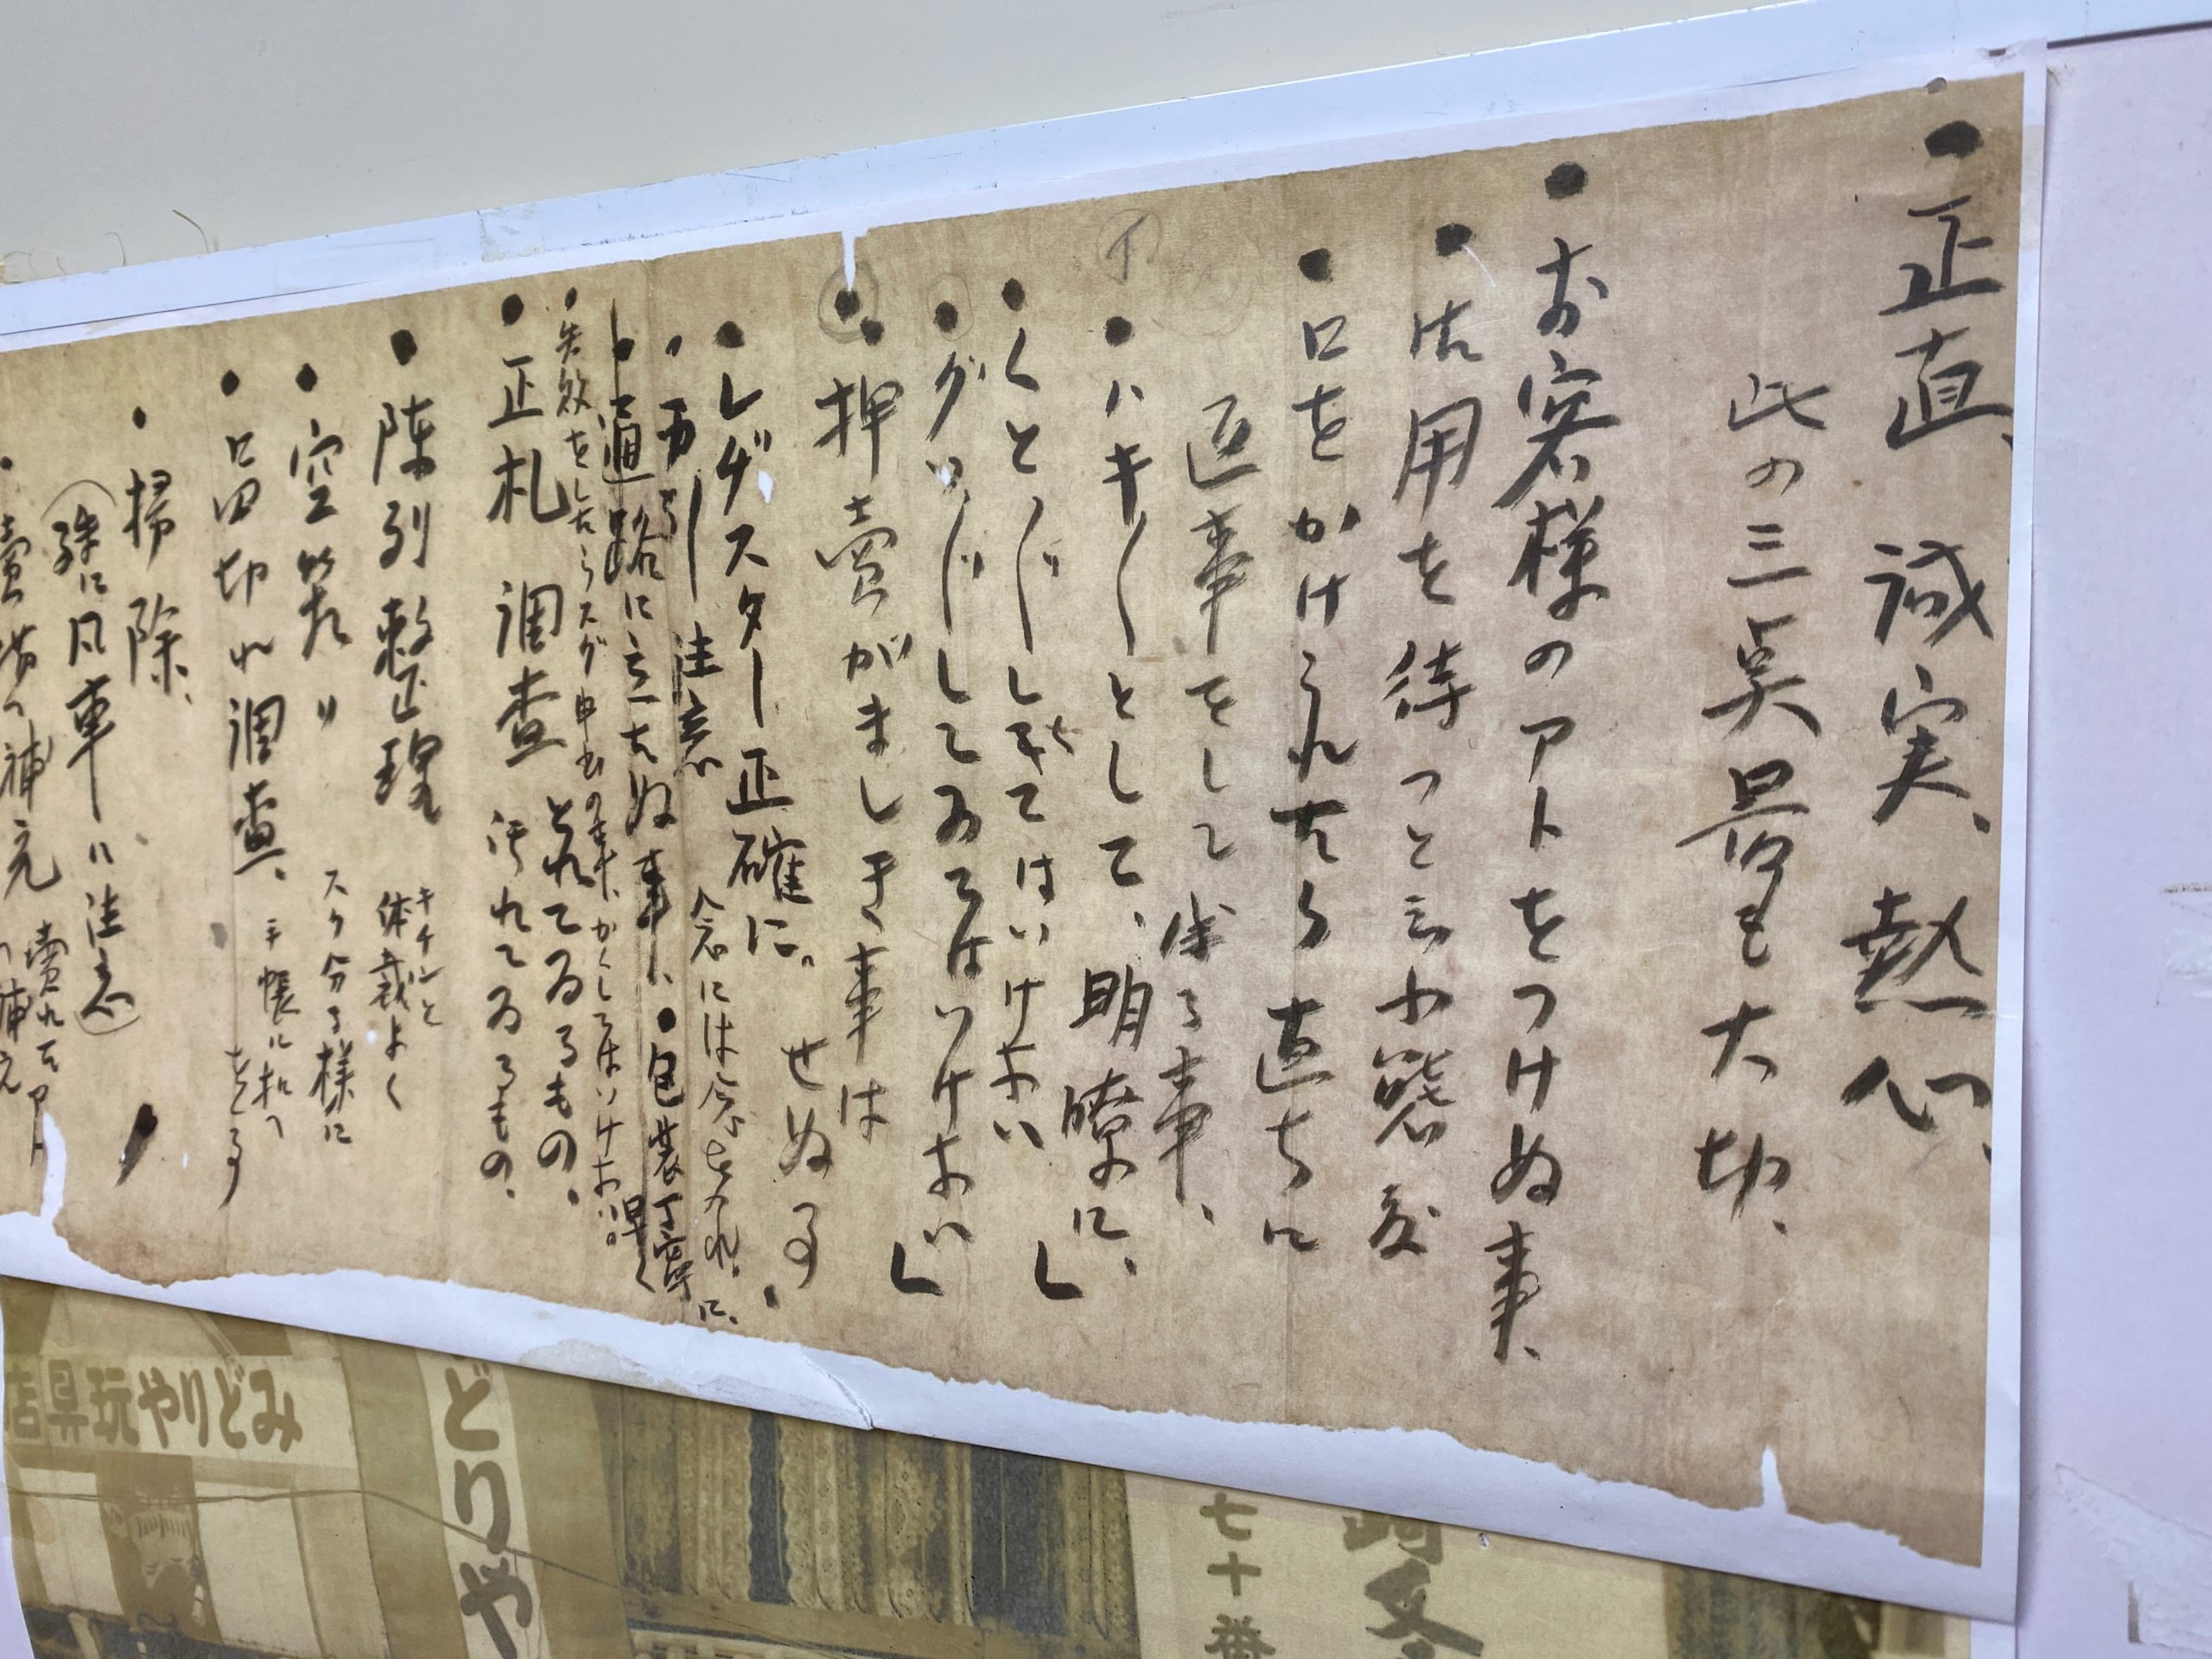 ・正直、誠実、熱心、
此の三点最も大切、
・お客様のアトをつけぬ事、
・御用を待つと云ふ態度
・口をかけられたら直ちに
返事をして伴る事、
・ハキ〱として、明瞭に、
・くど〲しくてはいけない
・グヅ〲してゐてはいけない
・押売がましき事は
せぬ事
・レヂスター正確に。
注意 念には念を入れ。
・包装丁寧に、早く
・通路に立たぬ事、
・失敗をしたらスグ申出の事、かくしてはいけない。
・正札 調査 とれてゐるもの。
汚れてゐるもの、
・陳列整理 キチンと
体裁よく
・空箱 スグ分る様に
・品切れ調査、手帳に扣へ
をする
・掃除、
(殊に風車に注意)
・売場へ補充 売れたアト
へ補充
みどりや玩具店
どりや
七十番